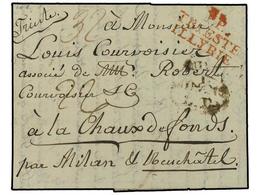 Trieste
à Monsieur
Louis Courvoisier
TRIESTE
ILLYRIE
associé de MM. Robert
Courvoisier & C
à la Chaux de fonds
par Milan & Neuchâtel